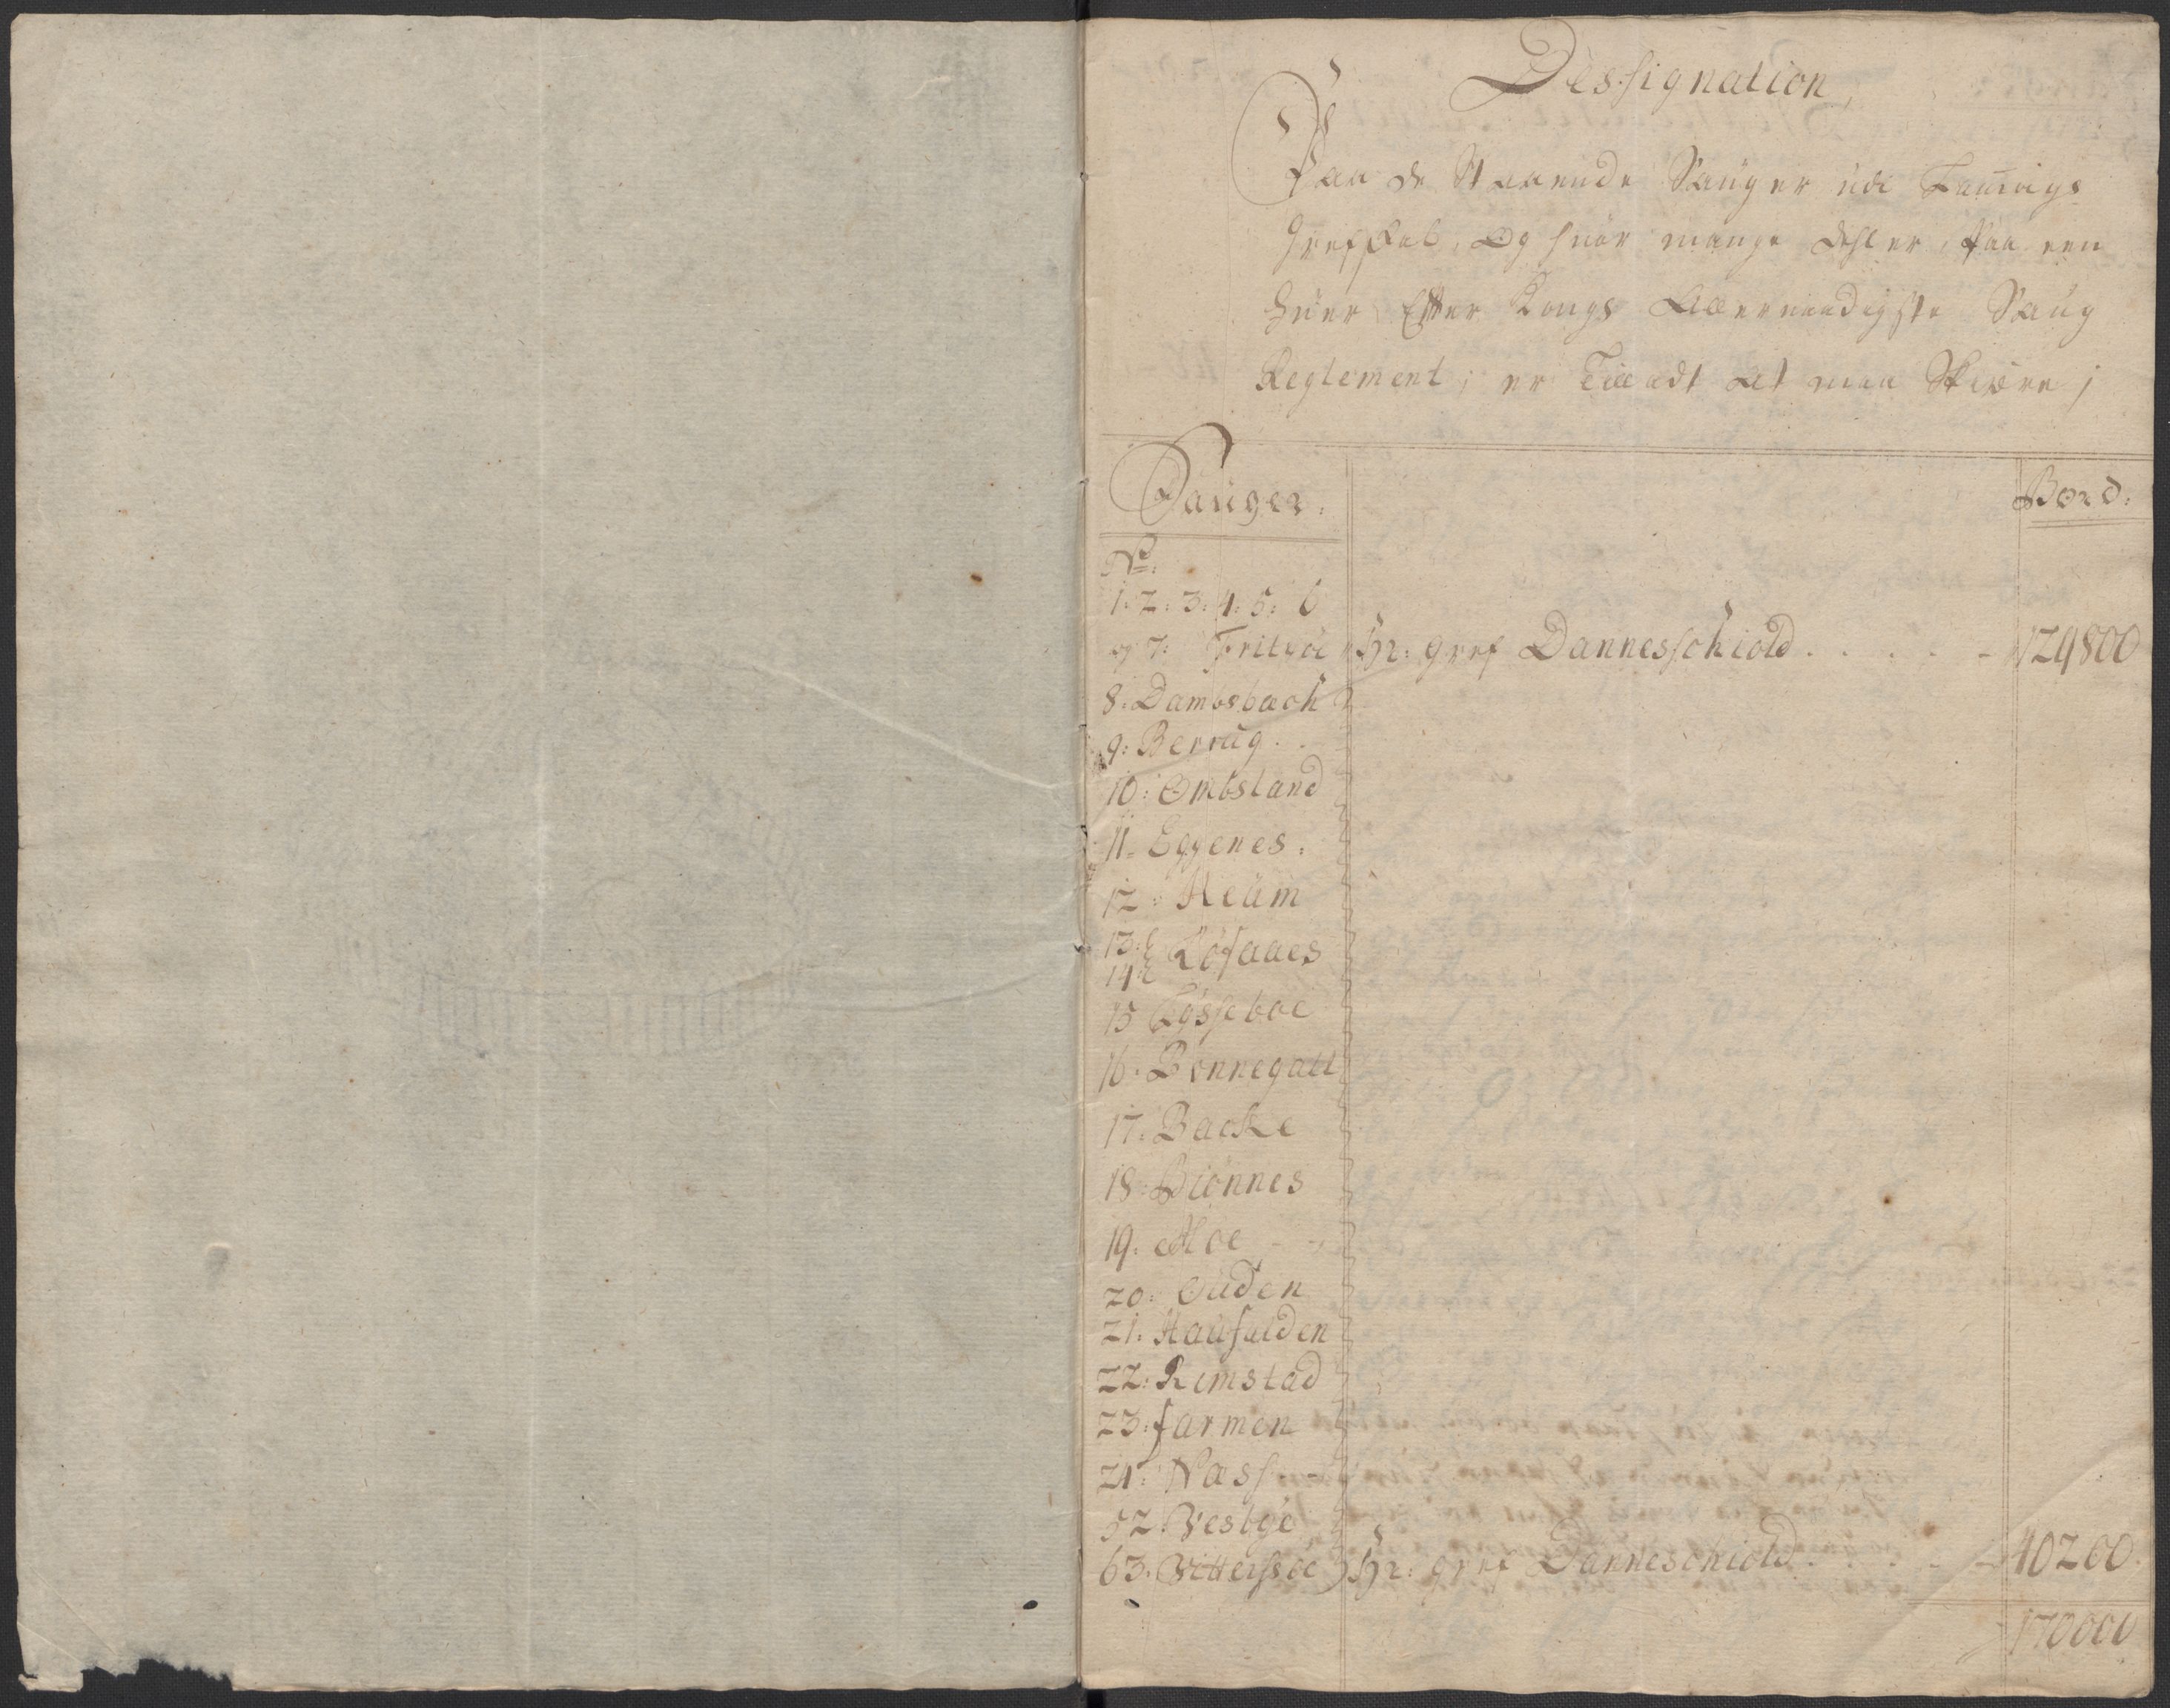 Dessignation,
Paa de Staaende Sauger udi Laurvigs
Grefskab, Og huor mange dehler, Paa een
huer Efter Kongl Allernaadigste Saug
Reglement; er Tilladt At maa Skiære;
Sauger: Bord:
No:
1: 2: 3: 4: 5: 6
og 7: Fritzöe Hr: gref Dannesschiold . . . . . - 129800
8: Dambsbach
9: Berrug . .
10: Ombsland
11: Eggenes:
12: Heüm
13: Löfaaes
14:
15 Lysseboe
16: Bonnegall
17: Backe
18: Biönnes
19: Moe - -
20: Ouden
21: Haufalden
22: Rimstad
23: farmen
24: Næss
52: Vesbye
63: Vittersöe Hr: gref Danneschiold . . . - - 40200
170000